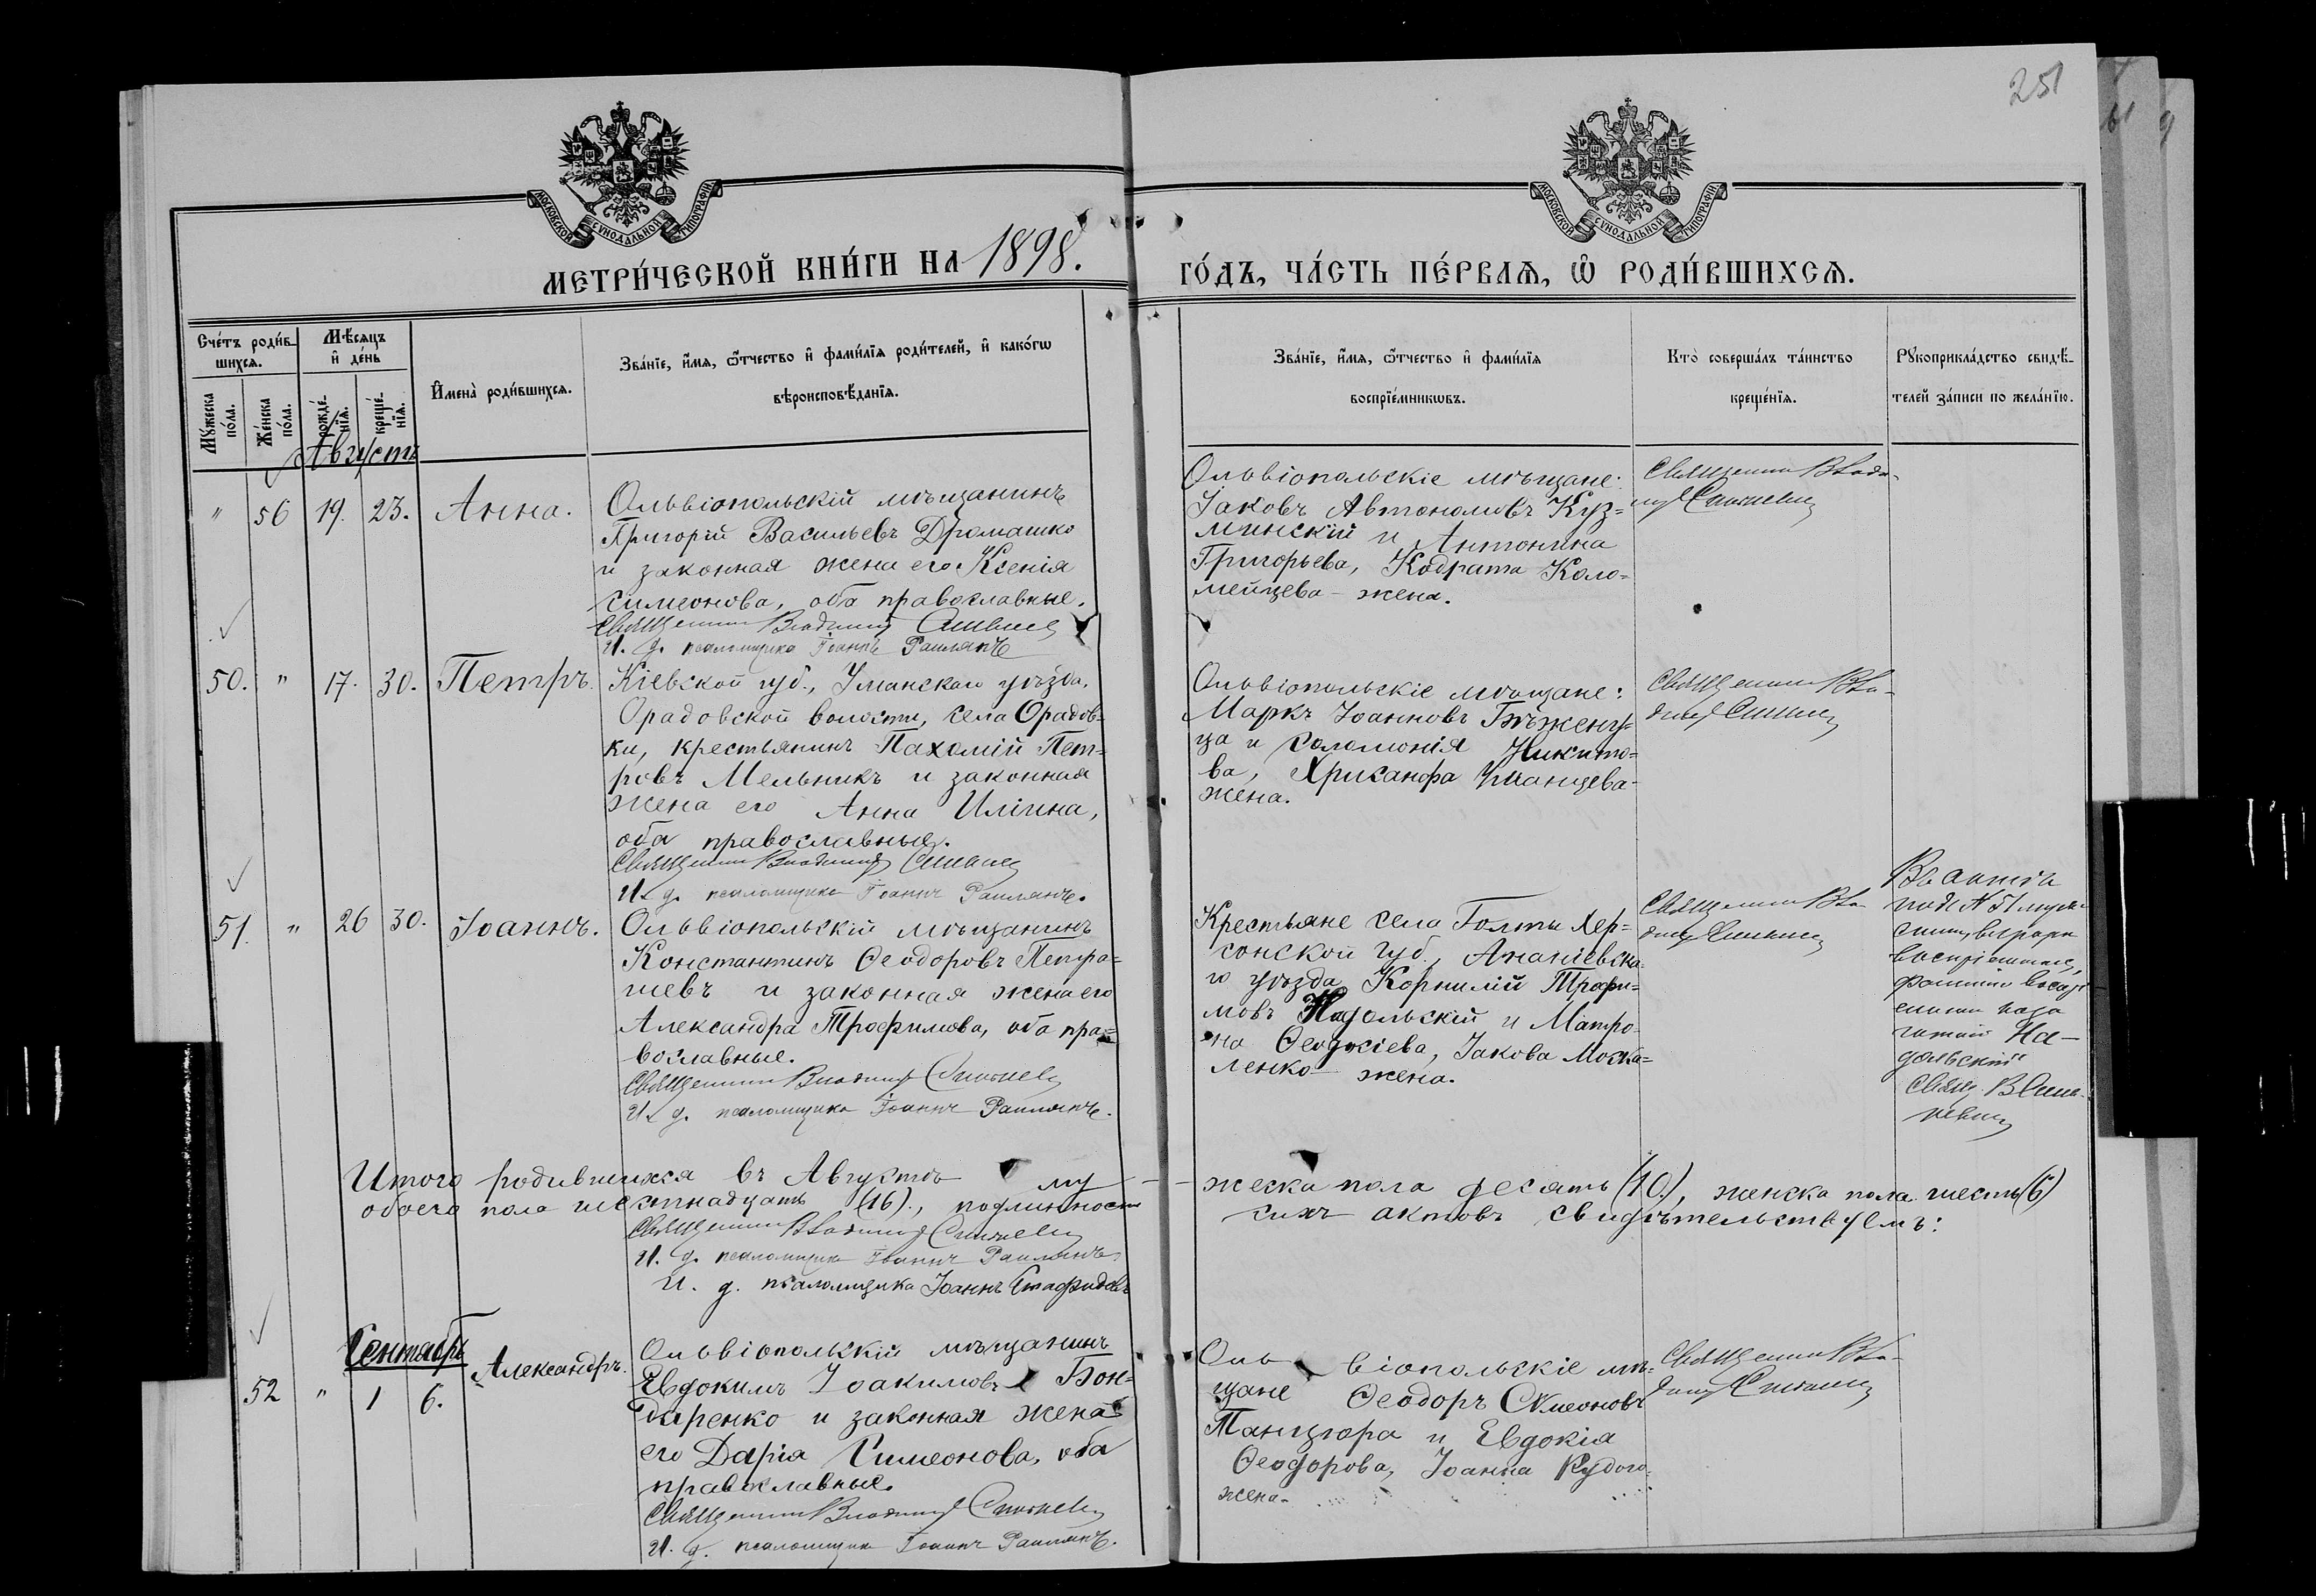 251
МОСКОВСКОЙ СѴНОДАЛЬНОЙ ТИПОГРАФІИ
МОСКОВСКОЙ СѴНОДАЛЬНОЙ ТИПОГРАФІИ
МЕТРИ́ЧЕСКОЙ КНИ́ГИ НА 1898.
ГО́ДЪ, ЧА́СТЬ ПЕ́РВАѦ, Ѽ РОДИ́ВШИХСѦ.
Сче́тъ роди́в-
шихсѧ.
Мꙋ́жеска
по́ла.
Же́нска
по́ла.
Мѣ́сѧцъ
и҆ де́нь
рожде́-
нїѧ.
креще́-
нїѧ.
И҆мена̀ роди́вшихсѧ.
Зва́нїе, и҆́мѧ, ѻ҆́тчество и҆ фами́лїѧ роди́телей, и҆ како́гѡ
вѣроисповѣ́данїѧ.
Зва́нїе, и҆́мѧ, ѻ҆́тчество и҆ фами́лїѧ
воспрїе́мникѡвъ.
Кто̀ соверша́лъ та́инство
креще́нїѧ.
Рꙋкоприкла́дство свидѣ́-
телей за́писи по жела́нїю.
Августъ
" 56 19. 23. Анна.
Ольвіопольскій мѣщанинъ
Григорій Васильевъ Дромашко
и законная жена его Ксенія
Симеонова, оба православные.
Священникъ Владимір
И. д. псаломщика Іоаннъ
Ольвіопольскіе мѣщане:
Іаковъ Автономовъ Куз=
минскій и Антонина
Григорьева, Кодрата Коло=
мейцева - жена.
Священникъ Влади-
мір
50. " 17. 30. Петръ.
Кіевской губ., Уманскаго уѣзда,
Орадовской волости, села Орадов-
ки, крестьянинъ Пахомій Пет=
ровъ Мельникъ и законная
жена его Анна Иліина,
оба православные.
Священникъ Владимір
И. д. псаломщика Іоаннъ
Ольвіопольскіе мѣщане:
Маркъ Іоанновъ
ца и Соломонія Никито=
ва, Хрисанфа Уманцева-
жена.
Священникъ Вла-
димір
51. " 26 30. Іоаннъ.
Ольвіопольскій мѣщанинъ
Константинъ Ѳеодоровъ Петра=
шевъ и законная жена его
Александра Трофимова, оба пра=
вославные.
Священникъ Владимір
И. д. псаломщика Іоаннъ
Крестьяне села Голты Хер=
сонской губ., Ананіевска-
го уѣзда Корнилій Трофи=
мовъ Надольскій и Матро-
на Ѳеодосіева, Іакова Моска=
ленко - жена.
Священникъ Вла-
димір
Въ актѣ
подъ № 51
въ графѣ
На-
дольскій
Свящ. В.
Итого родившихся въ Августѣ му - - жеска пола десять (10), женска пола шесть (6)
обоего пола шестнадцать (16)., подлинность сихъ актовъ свидѣтельствуемъ:
Священникъ Владимір
И. д. псаломщика Іоаннъ
И. д. псаломщика Іоаннъ
Сентябрь
52 " 1 6. Александръ.
Ольвіопольскій мѣщанинъ
Евдокимъ Іоакимовъ Бон=
даренко и законная жена
его Дарія Симеонова, оба
православные.
Священникъ Владимір
И. д. псаломщика Іоаннъ
Оль віопольскіе мѣ-
щане Ѳеодоръ Симеоновъ
Танцюра и Евдокія
Ѳеодорова, Іоанна
жена.
Священникъ Вла-
димір